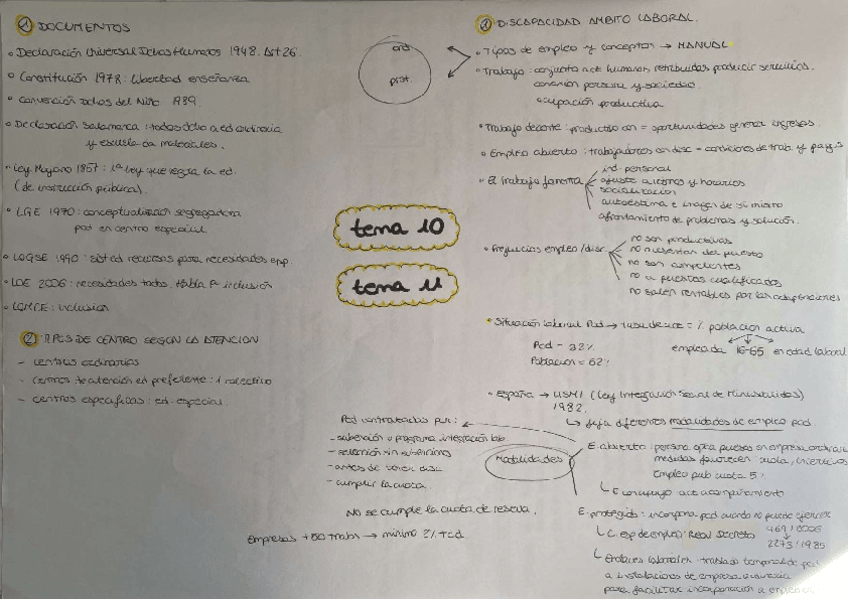 1 DOCUMENTOS
• Declaración Universal Dchos Humanos 1948. Art 26.
• Constitución 1978: libertad enseñanza
• Convención dchos del Niño 1989.
• Declaración Salamanca: todos dcho a ed ordinaria
y escuela da materiales.
• Ley Moyano 1857: 1ª ley que regula la ed.
(de instrucción pública).
• LGE 1970: conceptualización segregadora
pcd en centro especial
• LOGSE 1990: sist ed recursos para necesidades esp
• LOE 2006: necesidades todos. Habla de inclusión
• LOMCE: inclusión
2 TIPOS DE CENTRO SEGÚN LA ATENCIÓN
- centros ordinarios
- centros de atención ed preferente: 1 colectivo
- centros específicos: ed. especial.
ord
prot.
tema 10
tema 11
DISCAPACIDAD AMBITO LABORAL.
• Tipos de empleo y conceptos → MANUAL
• Trabajo: conjunto act humanas, retribuidas producir servicios.
conexión persona y sociedad
ocupación productiva
• Trabajo decente: productivo con = oportunidades generar ingresos.
• Empleo abierto: trabajadores con disc = condiciones de trab. y pago
• El trabajo fomenta
ind. personal
ajuste a normas y horarios
socialización
autoestima e imagen de sí mismo
afrontamiento de problemas y solución.
• Prejuicios empleo/disc.
no son productivas
no del puesto
no son competentes
no a puestos cualificados
no salen rentables por las adaptaciones
• Situación laboral Pcd → % población activa
Pcd - 32%
Población = 62%
empleada 16-65 en edad laboral
• España → LISMI (Ley Integración Social de Minusválidos)
1982.
↳ fija diferentes modalidades de empleo pcd
Pcd contratadas por:
- subvención o programa integración lab
- selección sin subvenciones
- antes de tener disc
- cumplir la cuota.
Modalidades
E. abierto: persona ocupa puestos en empresa ordinaria
medidas favorecen: cuota, incentivos
Empleo pub cuota 5%
↳ E con apoyo: act acompañamiento
No se cumple la cuota de reserva.
Empresas +50 trabs → mínimo 2% tcd
E. protegido: incorpora pcd cuando no puede ejercer
469/2006
↳ C. esp de empleo: Real Decreto
2273/1985
↳ Enclaves laborales: traslado temporal de pcd
a instalaciones de empresa
para facilitar incorporación a empresa